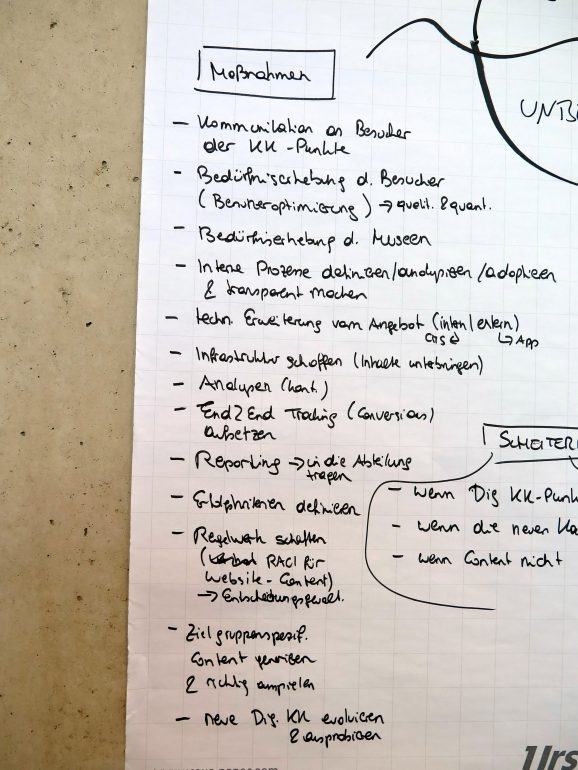 Maßnahmen
- Kommunikation an Besucher
der KK-Punkte
- Bedürfniserhebung d. Besucher
(Benutzeroptimierung) → qualit. & quant.
- Bedürfniserhebung d. Museen
- Interne Prozesse definieren/analysieren/adaptieren
& transparent machen
- techn. Erweiterung vom Angebot (intern/extern)
CMS ↲ ↳ App
- Infrastruktur schaffen (Inhalte unterbringen)
- Analysen (kont.)
- End2End Tracking (Conversions)
aufsetzen
- Reporting → in die Abteilung
tragen
- Erfolgskriterien definieren
- Regelwerk schaffen
( RACI für
Website-Content)
→ Entscheidungsgewalt.
- Zielgruppenspezif.
Content generieren
& richtig ausspielen
- neue Dig. KK evaluieren
& ausprobieren
UNB
SCHEITER
- wenn Dig KK-Punk
- wenn die neuen Ka
- wenn Content nicht